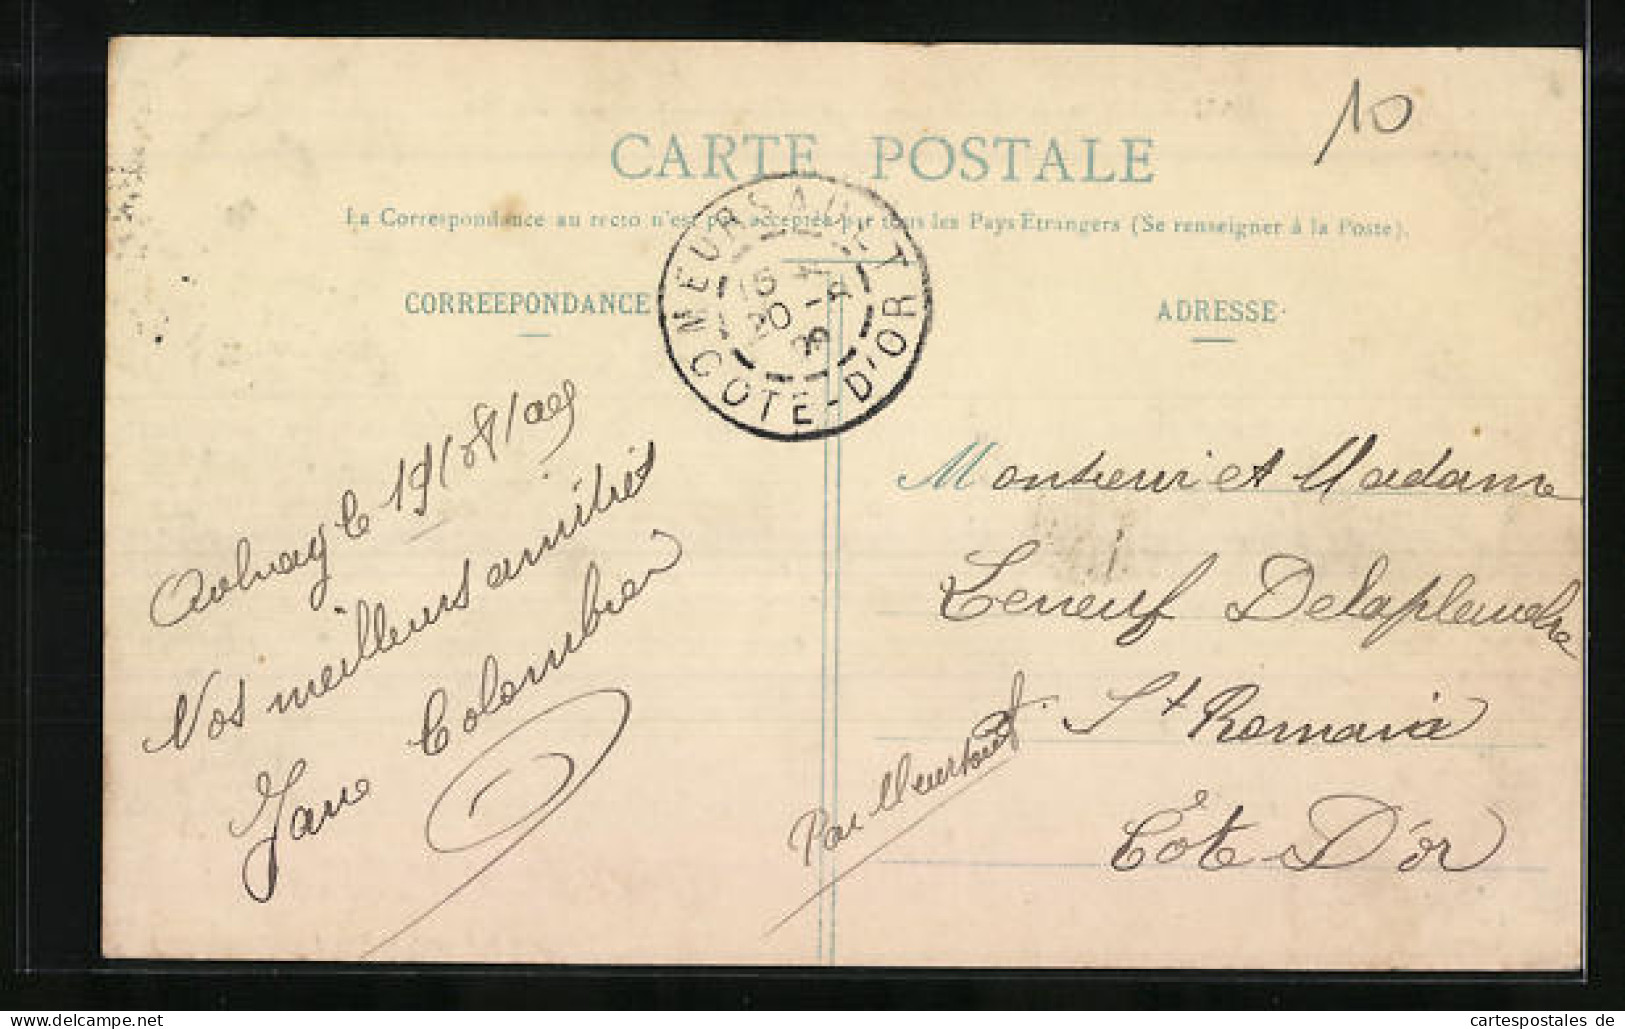 10
CARTE POSTALE
La Correspondance au recto n'est pas acceptée par tous les Pays Etrangers (Se renseigner à la Poste).
CORREEPONDANCE
ADRESSE
MEURSAULT
20 - 8
09
COTE-D'OR
Aulnay le 19/8/09
Nos meilleurs amitiés
Jane Colombier
Monsieur et Madame
Leneuf Delaplanche
St Romain
Par Meursault
Côte D'or
cartespostales de